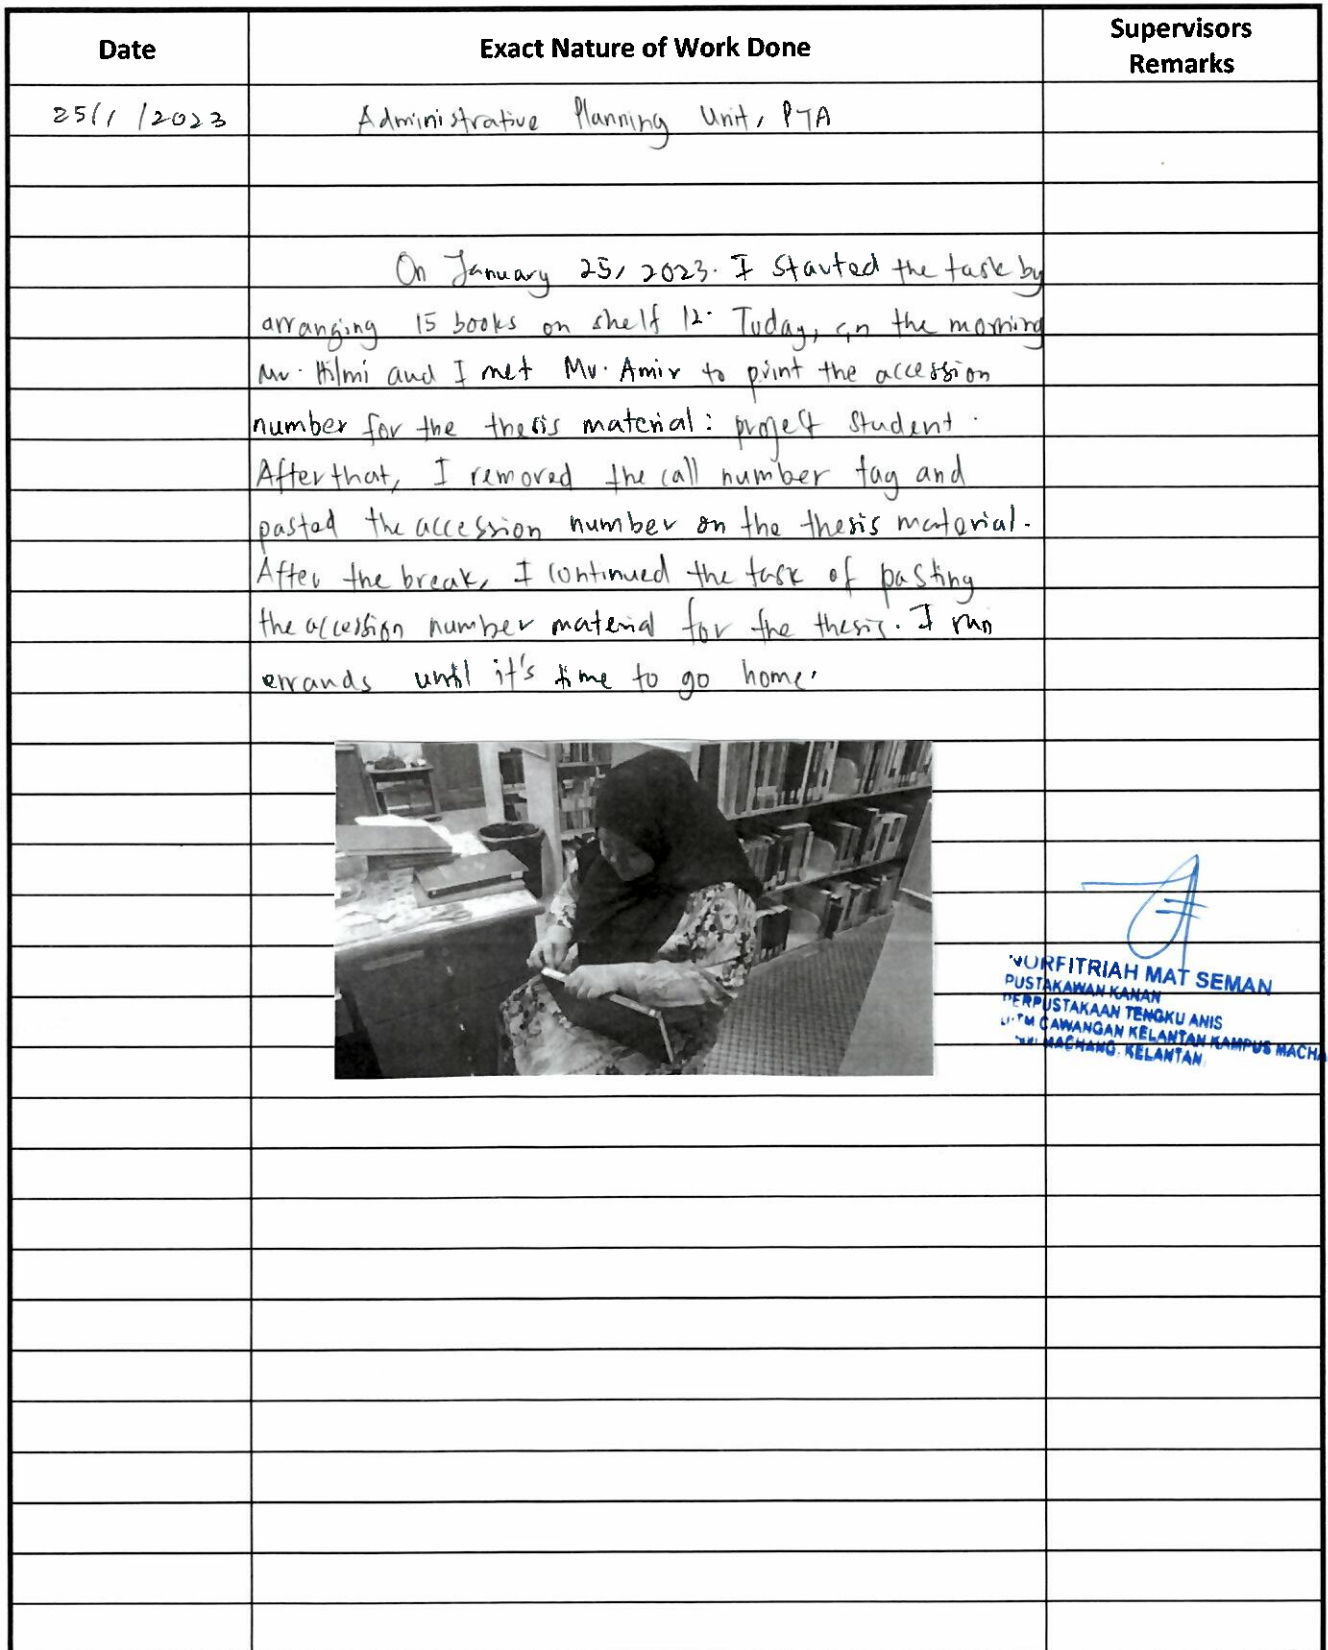 Date
Exact Nature of Work Done
Supervisors
Remarks
25/1/2023
Administrative Planning Unit, PTA
On January 25, 2023. I started the task by
arranging 15 books on shelf 12. Today, in the morning
Mr. Hilmi and I met Mr. Amir to print the accession
number for the thesis material: project student.
After that, I removed the call number tag and
pasted the accession number on the thesis material.
After the break, I continued the task of pasting
the accession number material for the thesis. I run
errands until it's time to go home.
NURFITRIAH MAT SEMAN
PUSTAKAWAN KANAN
PERPUSTAKAAN TENGKU ANIS
CAWANGAN KELANTAN KAMPUS MACHA
MACHANG. KELANTAN